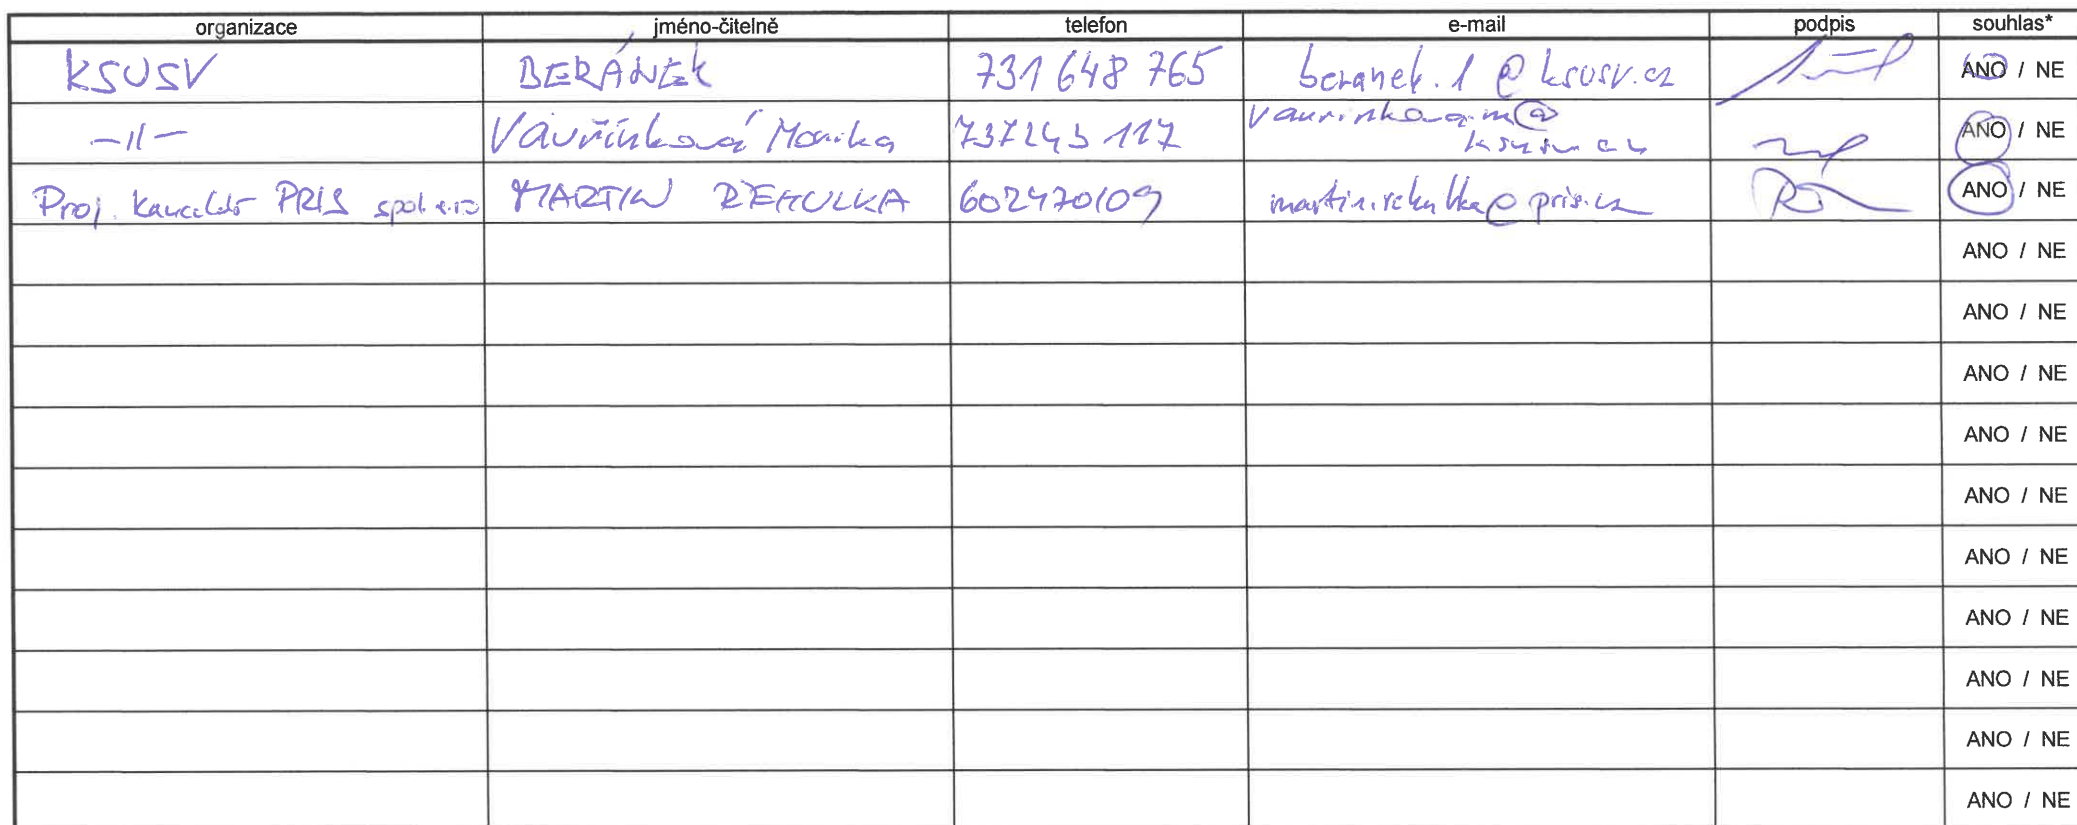 organizace jméno-čitelně telefon e-mail podpis souhlas*
KSUSV BERÁNEK 731 648 765 beranek.1@ksusv.cz ANO / NE
-||- Vavřínková Monika 737243 117 vavrinkova.m@ ANO / NE
ksusv.cz
Proj. kancelář PRIS spol. s.r.o MARTIN ŘEHULKA 602470109 martin.rehulka@pris.cz ANO / NE
ANO / NE
ANO / NE
ANO / NE
ANO / NE
ANO / NE
ANO / NE
ANO / NE
ANO / NE
ANO / NE
ANO / NE